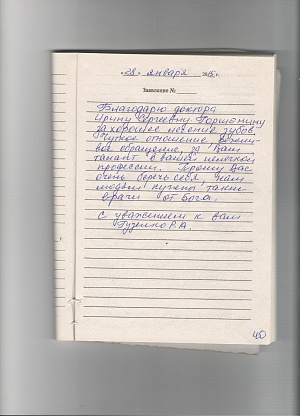 «28» января 2015 г.
Заявление №
Благодарю доктора
Ирину Сергеевну
за хорошее лечение зубов.
Чуткое отношение, вежли-
вое обращение, за Ваш
талант в вашей нелегкой
профессии. Прошу Вас
очень беречь себя, нам
людям нужны такие
врачи от Бога.
С уважением к вам
Р.А.
40